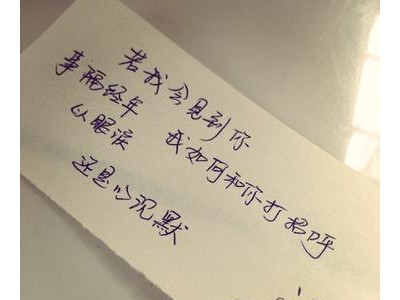 若我会见到你
事隔经年 我如何和你打招呼
以眼泪
还是以沉默